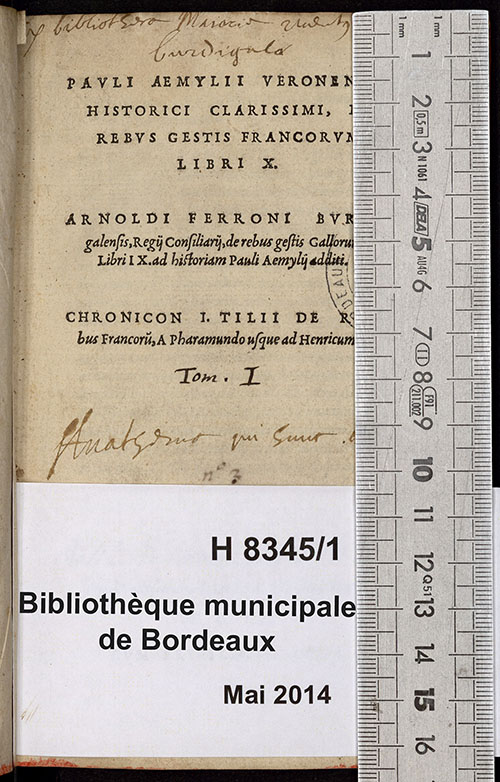 bibliotheca
PAVLI AEMYLII VERONEN
HISTORICI CLARISSIMI,
REBVS GESTIS FRANCORVM
LIBRI X.
ARNOLDI FERRONI BVR
galensis, Regij Consiliarij, de rebus gestis Galloru
Libri IX. ad historiam Pauli Aemylij additi.
DEAU
CHRONICON I. TILII DE R
bus Francorũ, A Pharamundo usque ad Henricum
Tom. I
Anathema qui
n° 3
H 8345/1
Bibliothèque municipale
de Bordeaux
Mai 2014
1 mm
1 mm
1
2
0,5 m
3
N 1061
4
DELA
5
AU4G
6
7
II
8
F91
211.002
9
10
11
12
Q 51
13
14
15
16